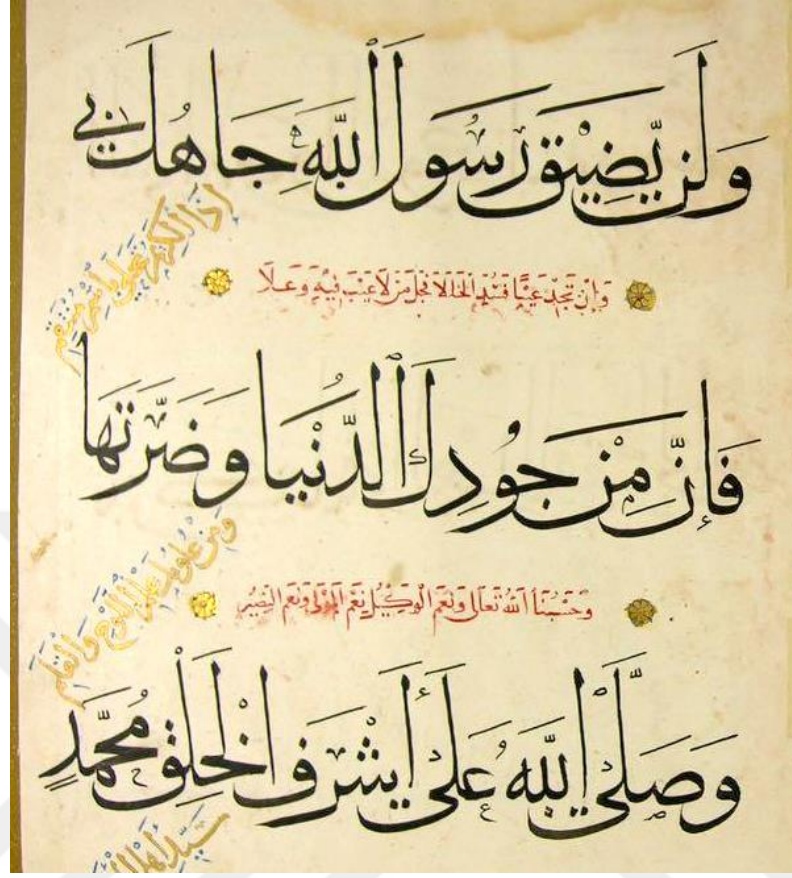 وَلَن يَّضِيْقَ رَسُولَ اللّٰهِ جَاهُكَ بِي
اِذَا الْكَرِيْمُ تَحَلّٰى بِاسْمِ مُنْتَقِمِ
وَاِنْ تَجِدْ عَيْبًا فَسُدِّ الْخَلَلَا فَجَلَّ مَنْ لَا عَيْبَ فِيْهِ وَعَلَا
فَاِنَّ مِنْ جُودِكَ الدُّنْيَا وَضَرَّتَهَا
وَمِنْ عُلُومِكَ عِلْمُ اللَّوْحِ وَالْقَلَمِ
وَحَسْبُنَا اللّٰهُ تَعَالٰى وَنِعْمَ الْوَكِيْلُ نِعْمَ الْمَوْلٰى وَنِعْمَ النَّصِيْرُ
وَصَلَّى اللّٰهُ عَلٰى اَشْرَفِ الْخَلْقِ مُحَمَّدٍ